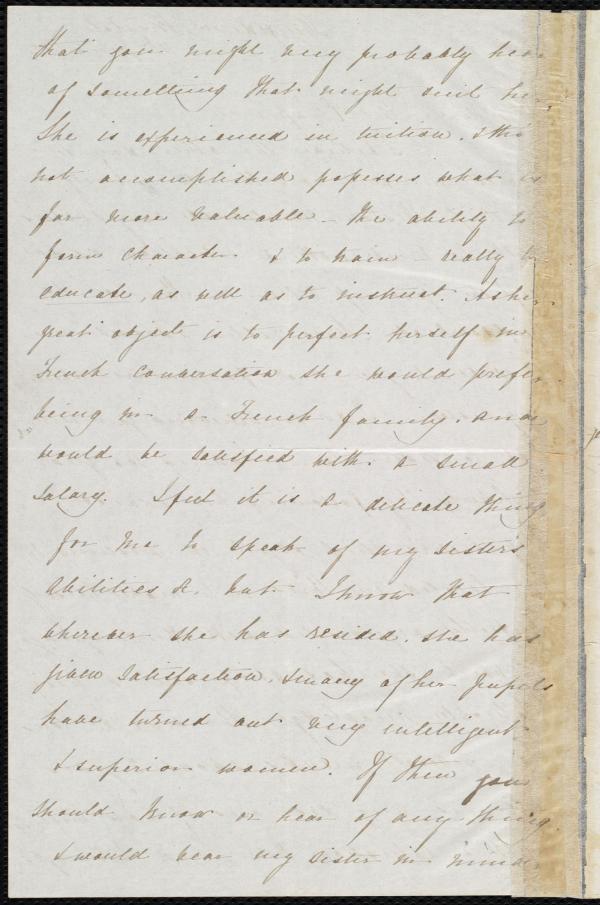 that you might very probably hear
of something that might suit her
She is experienced in tuition. & tho
not accomplished posesses what is
far more valuable - the ability to
form character & to train - really to
educate, as well as to instruct. As her
great object is to perfect herself in
French conversation she would prefer
being in a French family. and
would be satisfied with a small
salary. I feel it is a delicate thing
for me to speak of my sisters
abilities &. but I know that
wherever she has resided. she has
given satisfaction. & many of her pupils
have turned out very intelligent
& superior women. If then you
should know or hear of any thing
& would bear my sister in mind